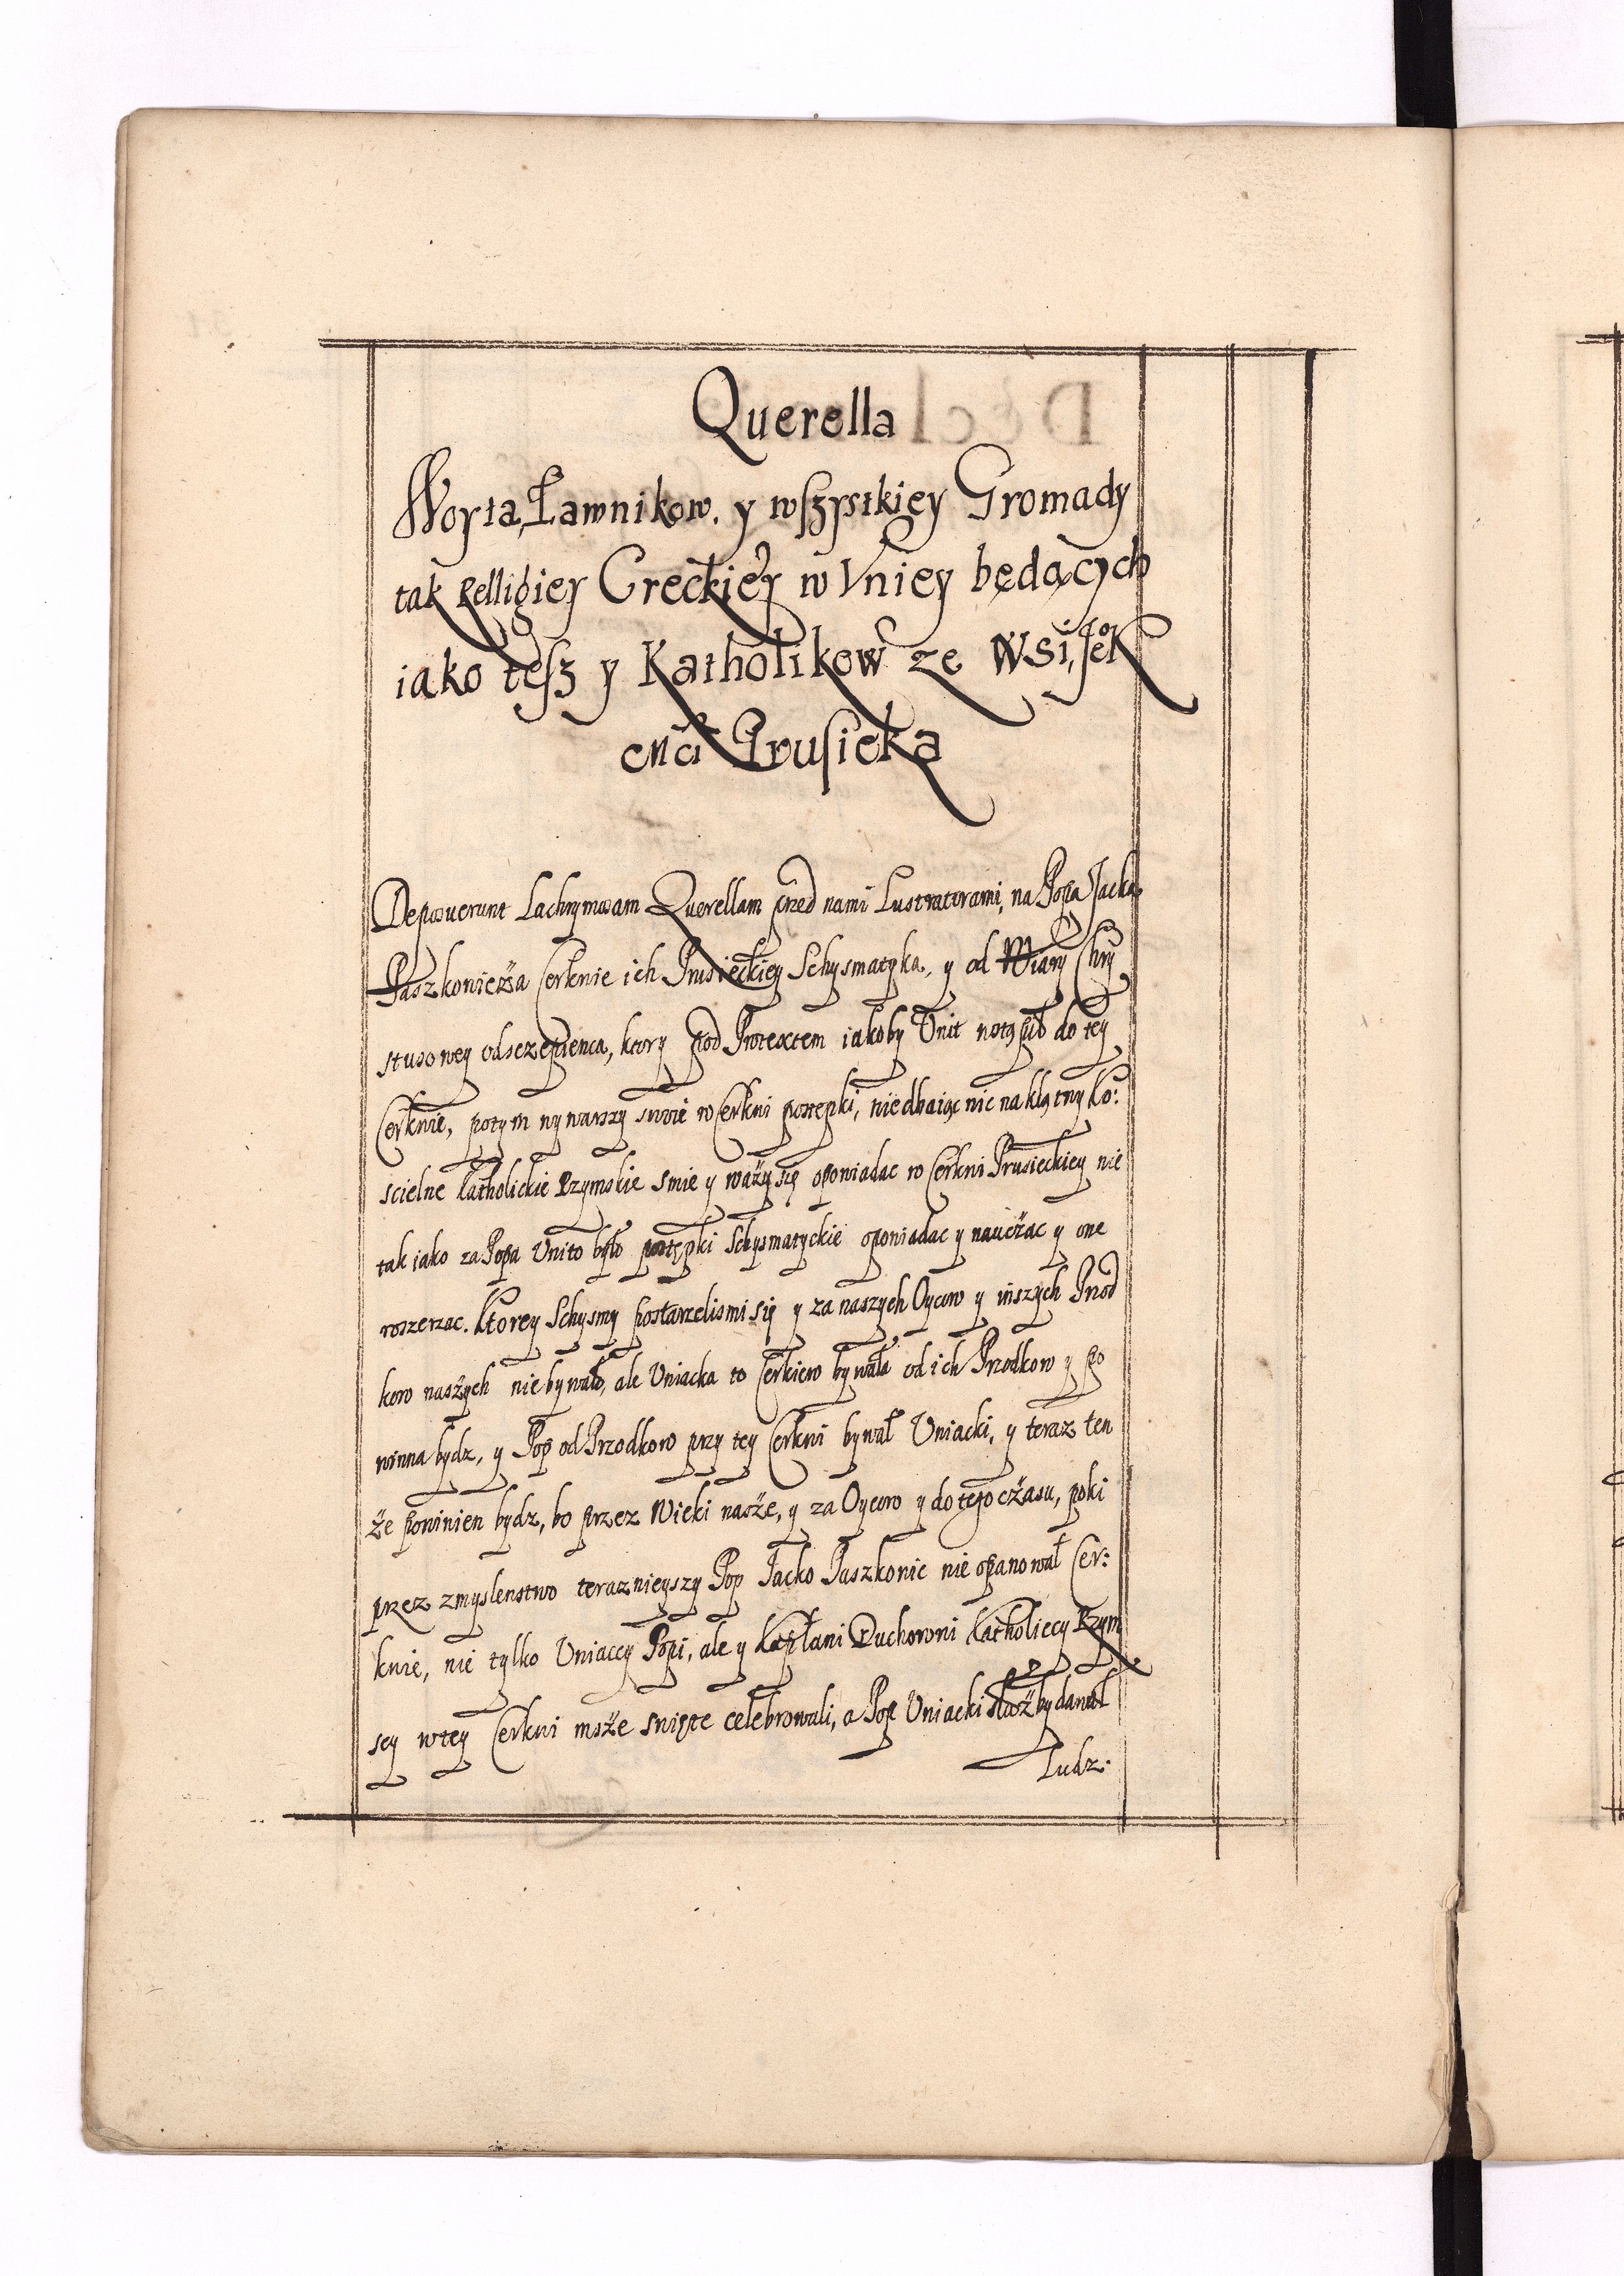 Querella
Woyta, Ławnikow. y wszystkiey Gromady
tak Relligiey Greckiey w Vniey będących
iako tesz y Katholikow ze Wsi,
Prusieka
Deposuerunt Lachrymosam Querellam przed nami Lustratorami, na Popa Jacka
Paszkowicza Cerknie ich Prusieckiey Schysmatyka, y od Wiary Chry
stusowey odszczepienca, ktory pod Prætextem iakoby Unit wstąpił do tey
Cerknie, potym wywarszy swoie w Cerkni postępki, nie dbaiąc nic na klątwy Ko:
scielne Katholickie Rzymskie smie y waży się opowiadac w Cerkni Prusieckiey nie
tak iako za Popa Unito było postępki Schysmatyckie opowiadac y nauczac y one
rozserzac. Ktorey Schysmy postarzelismi się y za naszych Oycow y inszych Przod
kow naszych nie bywało, ale Uniacka to Cerkiew bywała od ich Przodkow y po
winna bydz, y Pop od Przodkow przy tey Cerkni bywał Uniacki, y teraz ten
że powinien bydz, bo przez Wieki nasze, y za Oycow y do tego czasu, poki
przez zmyslenstwo terazniejszy Pop Jacko Paszkowic nie opanował Cer:
knie, nie tylko Uniaccy Popi, ale y Kapłani Duchowni Katholiccy Rzym
scy w tey Cerkni msze swięte celebrowali, a Pop Uniacki służby dawał
Ludz: